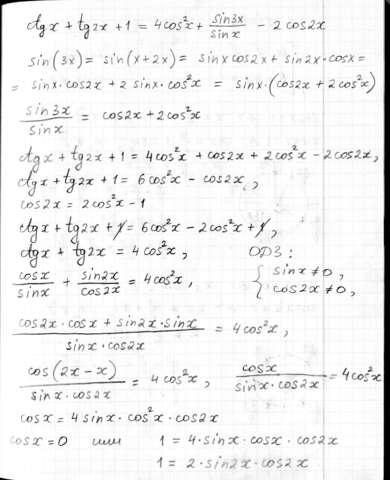 ctgx + tg2x + 1 = 4cos²x + sin3x/sinx - 2cos2x
sin(3x) = sin(x+2x) = sinx cos2x + sin2x·cosx =
= sinx·cos2x + 2 sinx·cos²x = sinx·(cos2x + 2cos²x)
sin3x/sinx = cos2x + 2cos²x
ctgx + tg2x + 1 = 4cos²x + cos2x + 2cos²x - 2cos2x,
ctgx + tg2x + 1 = 6cos²x - cos2x,
cos2x = 2cos²x - 1
ctgx + tg2x + 1 = 6cos²x - 2cos²x + 1,
ctgx + tg2x = 4cos²x, ОДЗ:
cosx/sinx + sin2x/cos2x = 4cos²x, { sinx ≠ 0, cos2x ≠ 0,
(cos2x·cosx + sin2x·sinx)/(sinx·cos2x) = 4cos²x,
cos(2x-x)/(sinx·cos2x) = 4cos²x, cosx/(sinx·cos2x) = 4cos²x
cosx = 4sinx·cos²x·cos2x
cosx = 0 или 1 = 4·sinx·cosx·cos2x
1 = 2·sin2x·cos2x